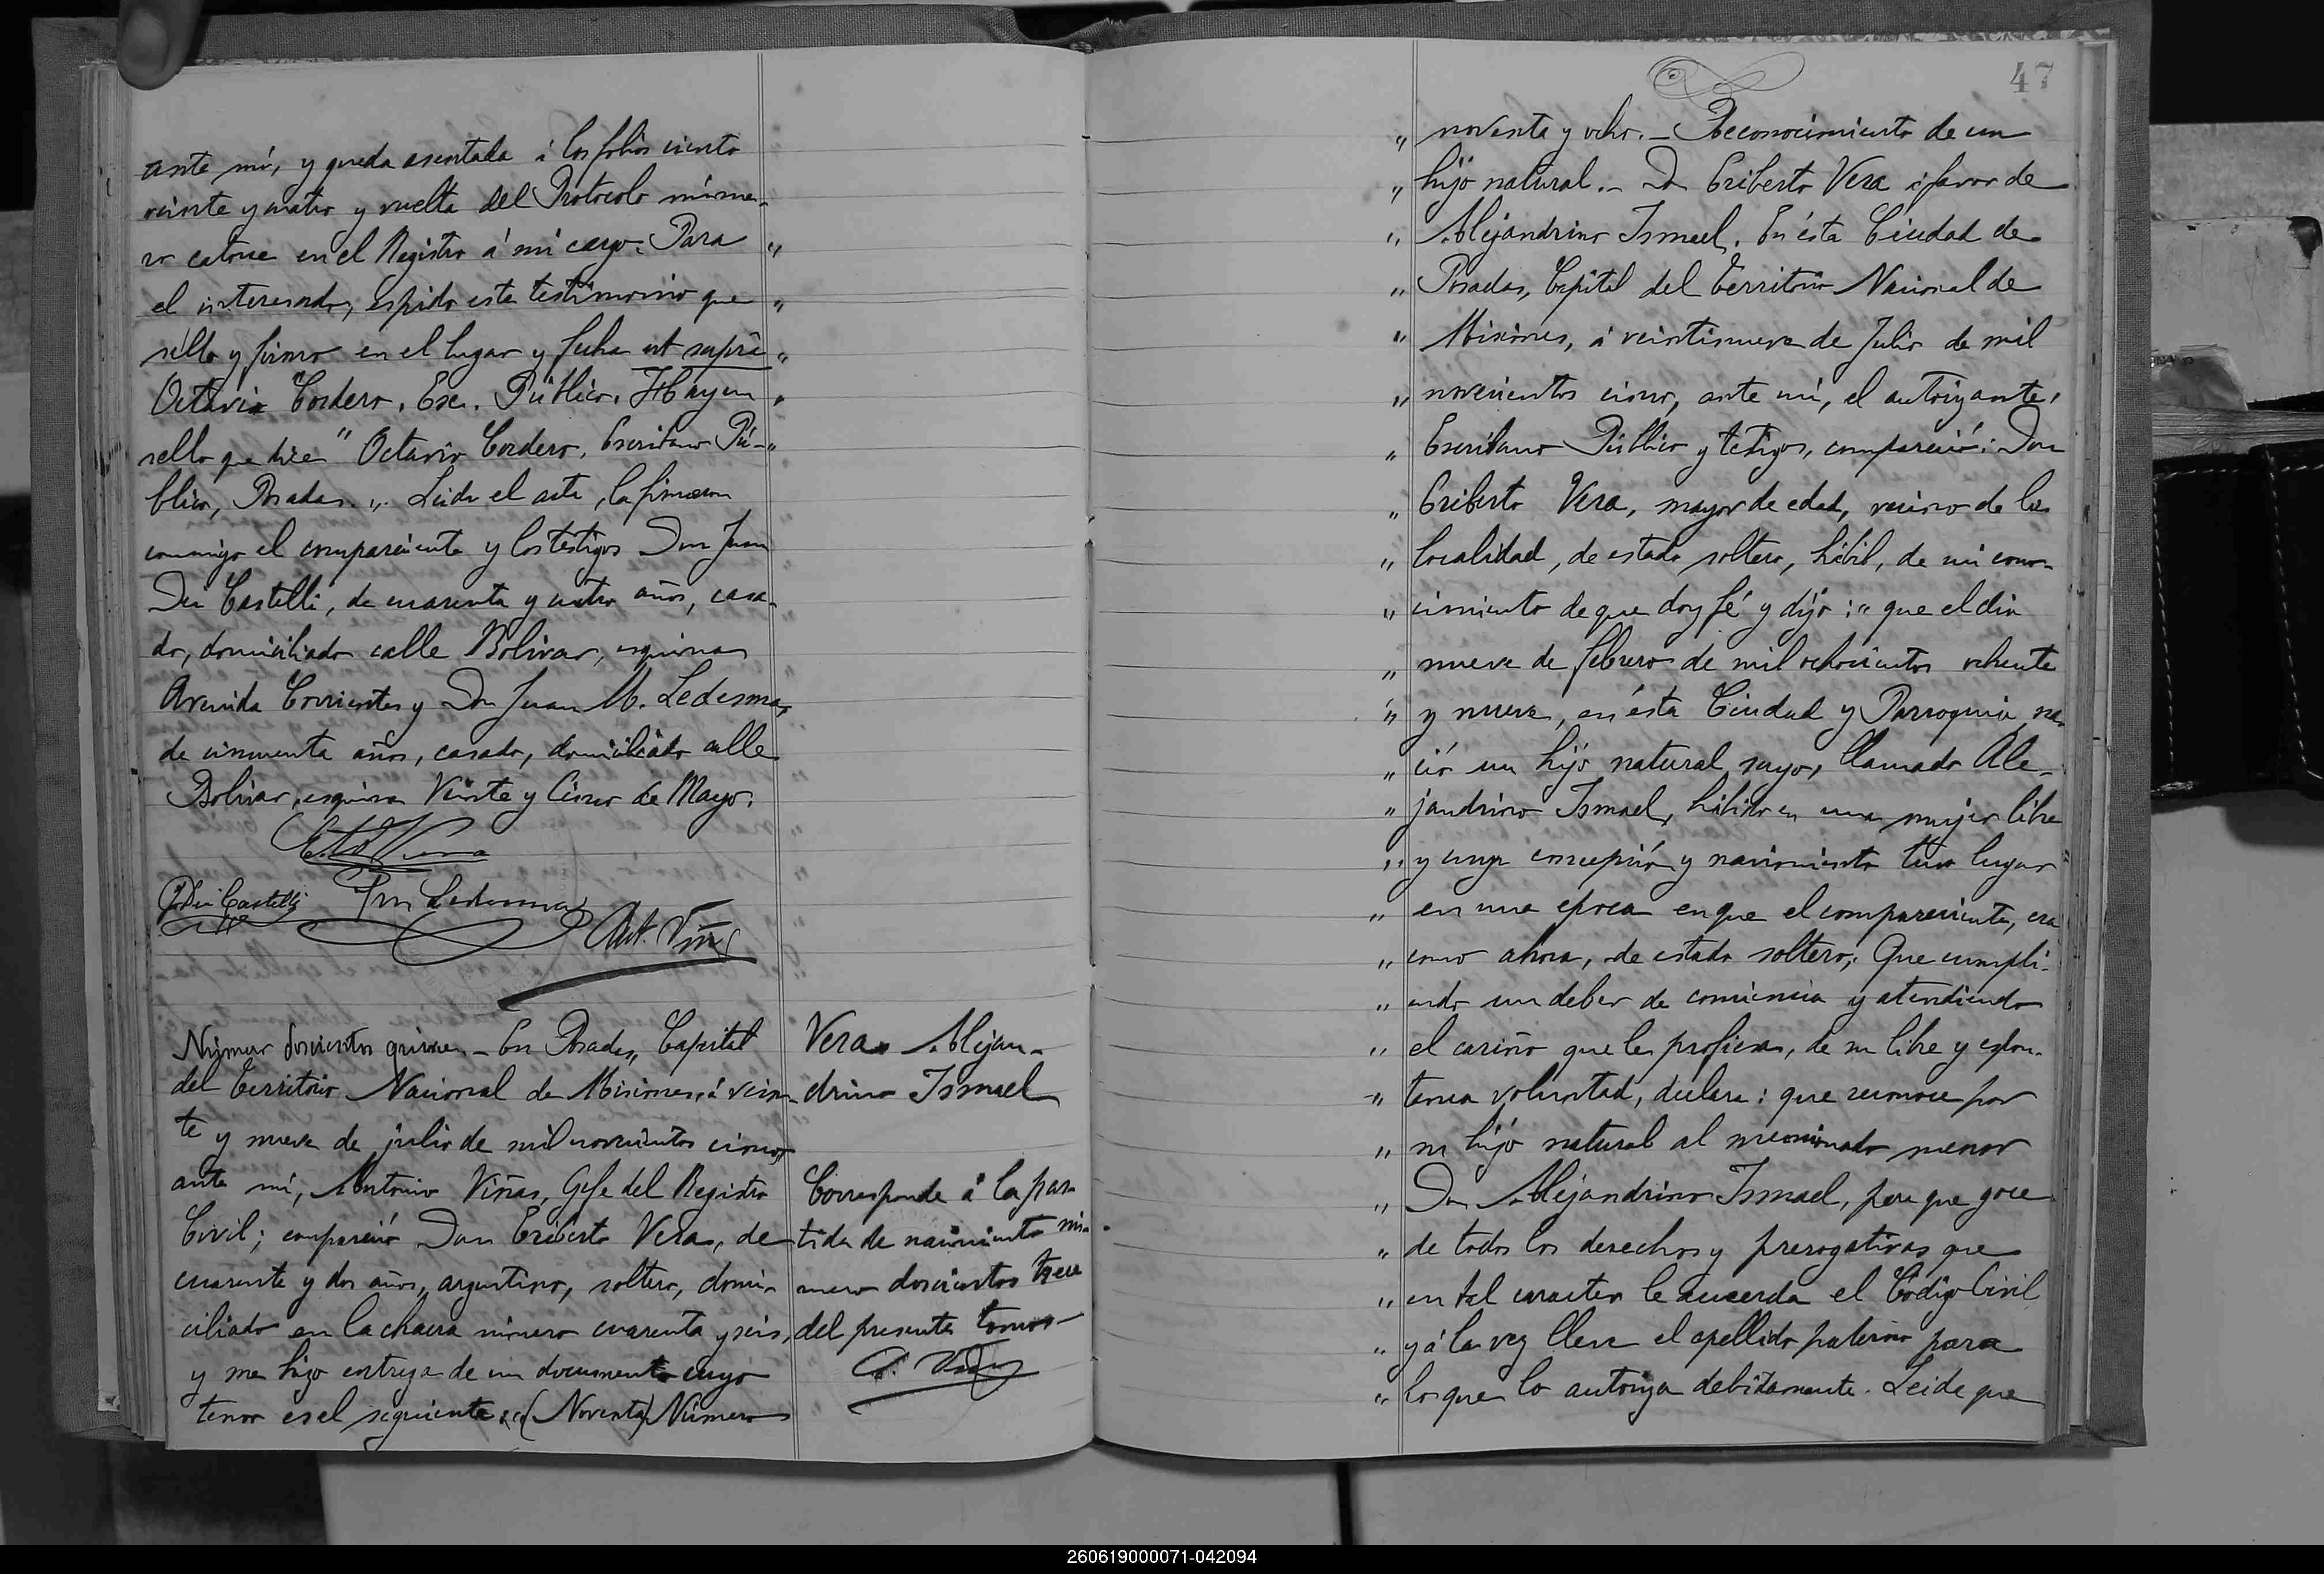 ante mí, y queda asentada á los folios ciento
veinte y cuatro y vuelta del Protocolo núme-
ro catorce en el Registro á mi cargo. Para "
el interesado, espido este testimonio que "
sello y firmo en el lugar y fecha ut supra "
Octavio Cordero, Esc. Público. Hay un "
sello que dice "Octavio Cordero, Escribano Pú- "
blico, Posadas. " Leida el acta, la firmaron
conmigo el compareciente y los testigos Don Juan
Dei Castelli, de cuarenta y cuatro años, casa-
do, domiciliado calle Bolivar, esquina
Avenida Corrientes y Don Juan M. Ledesma,
de cincuenta años, casado, domiciliado calle
Bolivar, esquina Veinte y Cinco de Mayo.
E. Vera
J. Dei Castelli Juan Ledesma
Ant. Viñas
Número doscientos quince - En Posadas, Capital
del Territorio Nacional de Misiones, á vein-
te y nueve de julio de mil novecientos cinco,
ante mí, Antonio Viñas, Gefe del Registro
Civil; compareció Don Eriberto Vera, de
cuarenta y dos años, argentino, soltero, domi-
ciliado en la chacra número cuarenta y seis,
y me hizo entrega de un documento cuyo
tenor es el siguiente: "(Noventa) Número
Vera Alejan-
drino Ismael
Corresponde á la par-
tida de nacimiento nú-
mero doscientos trece
del presente tomo-
A. Viñas
47
" noventa y ocho. - Reconocimiento de un
" hijo natural. - Dn Eriberto Vera á favor de
" Alejandrino Ismael. En ésta Ciudad de
" Posadas, Capital del Territorio Nacional de
" Misiones, á veintinueve de Julio de mil
" novecientos cinco, ante mí, el autorizante,
" Escribano Público y testigos, compareció: Don
" Eriberto Vera, mayor de edad, vecino de la
" localidad, de estado soltero, hábil, de mi cono-
" cimiento de que doy fé y dijo: " que el dia
" nueve de febrero de mil ochocientos ochenta
" y nueve, en ésta Ciudad y Parroquia na-
" ció un hijo natural suyo, llamado Ale-
" jandrino Ismael, habido en una mujer libre
" y cuya concepción y nacimiento tuvo lugar
" en una epoca en que el compareciente, era
" como ahora, de estado soltero; Que cumpli-
" endo un deber de conciencia y atendiendo
" el cariño que le profiesa, de su libre y espon-
" tanea voluntad, declara: que reconoce por
" su hijo natural al mencionado menor
" Don Alejandrino Ismael, para que goce
" de todos los derechos y prerogativas que
" en tal caracter le acuerda el Código Civil
" y á la vez lleve el apellido paterno para
" lo que lo autoriza debidamente. Leida que
260619000071-042094